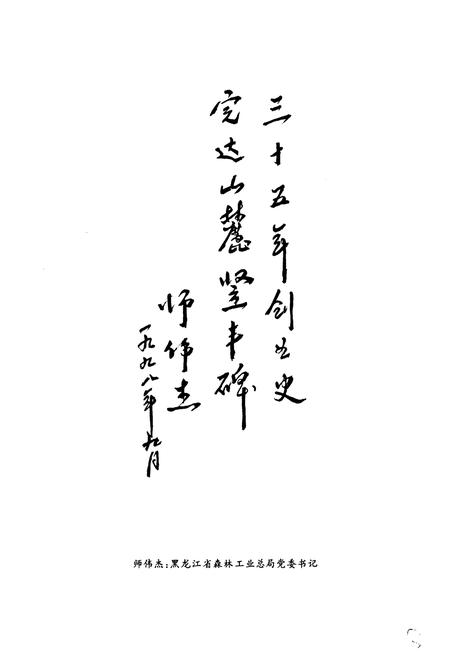 三十五年创业史
完达山麓竖丰碑
师伟杰
一九九八年九月
师伟杰:黑龙江省森林工业总局党委书记